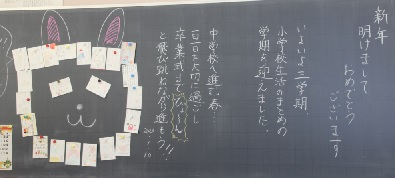 新年
明けまして
おめでとう
ございます
いよいよ三学期、
小学校生活のまとめの
学期を迎えました。
中学校へ進む春…
一日一日を大切に過ごし
卒業式までぴょーん
と飛び跳ねながら進もう!!